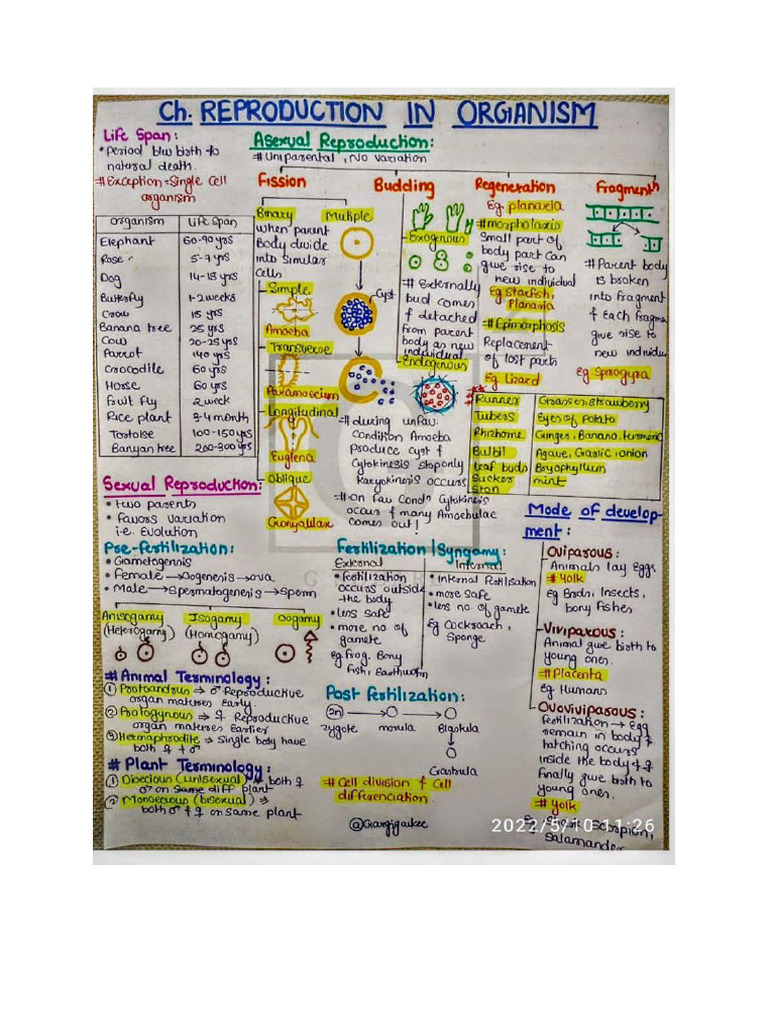 Ch. REPRODUCTION IN ORGANISM
Life Span:
• Period b/w birth to
natural death.
# Exception = Single Cell
organism
Organism Life Span
Elephant 60-90 yrs
Rose 5-7 yrs
Dog 14-18 yrs
Butterfly 1-2 weeks
Crow 15 yrs
Banana tree 25 yrs
Cow 20-25 yrs
Parrot 140 yrs
Crocodile 60 yrs
Horse 60 yrs
Fruit Fly 2 week
Rice plant 3-4 month
Tortoise 100-150 yrs
Banyan tree 200-300 yrs
Asexual Reproduction:
# Uniparental, No variation
Fission
Binary
when parent
Body divide
into simular
cells
Simple
Amoeba
Transverse
Paramoecium
Longitudinal
Euglena
Oblique
Gonyaulax
Multiple
Cyst
# during unfav.
Condition Amoeba
produce cyst &
Cytokinesis stop only
Karyokinesis occurs
# On Fav Condn Cytokinesis
occurs & many Amoebulae
comes out!
Budding
Exogenous
# Externally
bud comes
& detached
from parent
body as new
individual
Endogenous
Regeneration
Eg planaria
# morpholaxis
Small part of
body part can
give rise to
new individual
Eg Starfish,
Planaria
# Epimorphosis
Replacement
of lost parts
Eg Lizard
Fragmentn
# Parent body
is broken
into fragment
& each fragmen
give rise to
new individu
Eg Sprogyra
Runners Grasses, strawberry
Tubers Eyes of Potato
Rhizhome Ginger, Banana, turmeric
Bulbil Agave, Gaslic, onion
leaf buds Bryophyllum
Sucker mint
Ston
Sexual Reproduction:
• two parents
• favors variation
i.e. Evolution
Pre-fertilization:
• Gametogennis
• Female → Oogenesis → ova
• Male → Spermatogenesis → Sperm
Anisogamy Isogamy Oogamy
(Heterogamy) (Homogamy)
# Animal Terminology:
① Protoandrus ⇒ ♂ Reproductive
organ matures Early.
② Protogynous ⇒ ♀ Reproductive
organ matures Earlier
③ Hermaphrodite ⇒ Single body have
both ♀ & ♂
# Plant Terminology:
① Dioecious (unisexual) ⇒ both ♀
♂ on same diff plant
② Monoecious (bisexual) ⇒
both ♂ & ♀ on same plant
Fertilization/Syngamy:
External
• fertilization
occurs outside
the body
• less safe
• more no of
gamete
eg frog, Bony
fish, Earthworm
Internal
• internal fertilisation
• more safe
• less no of gamete
Eg Cockroach,
Sponge
Post fertilization:
2n → O → O
zygote morula Blastula
Gastrula
# Cell division & Cell
differenciation.
@Gargigaukee
Mode of develop-
ment:
Oviparous:
Animals lay Eggs
# Yolk
Eg Birds, Insects,
bony fishes
Viviparous:
Animal give birth to
young ones.
# Placenta
Eg Humans
Ovoviviparous:
fertilization → Egg
remain in body &
hatching occurs
inside the body & ♀
finally give birth to
young ones.
# Yolk
Scorpion,
Salamander
2022/5/10 11:26